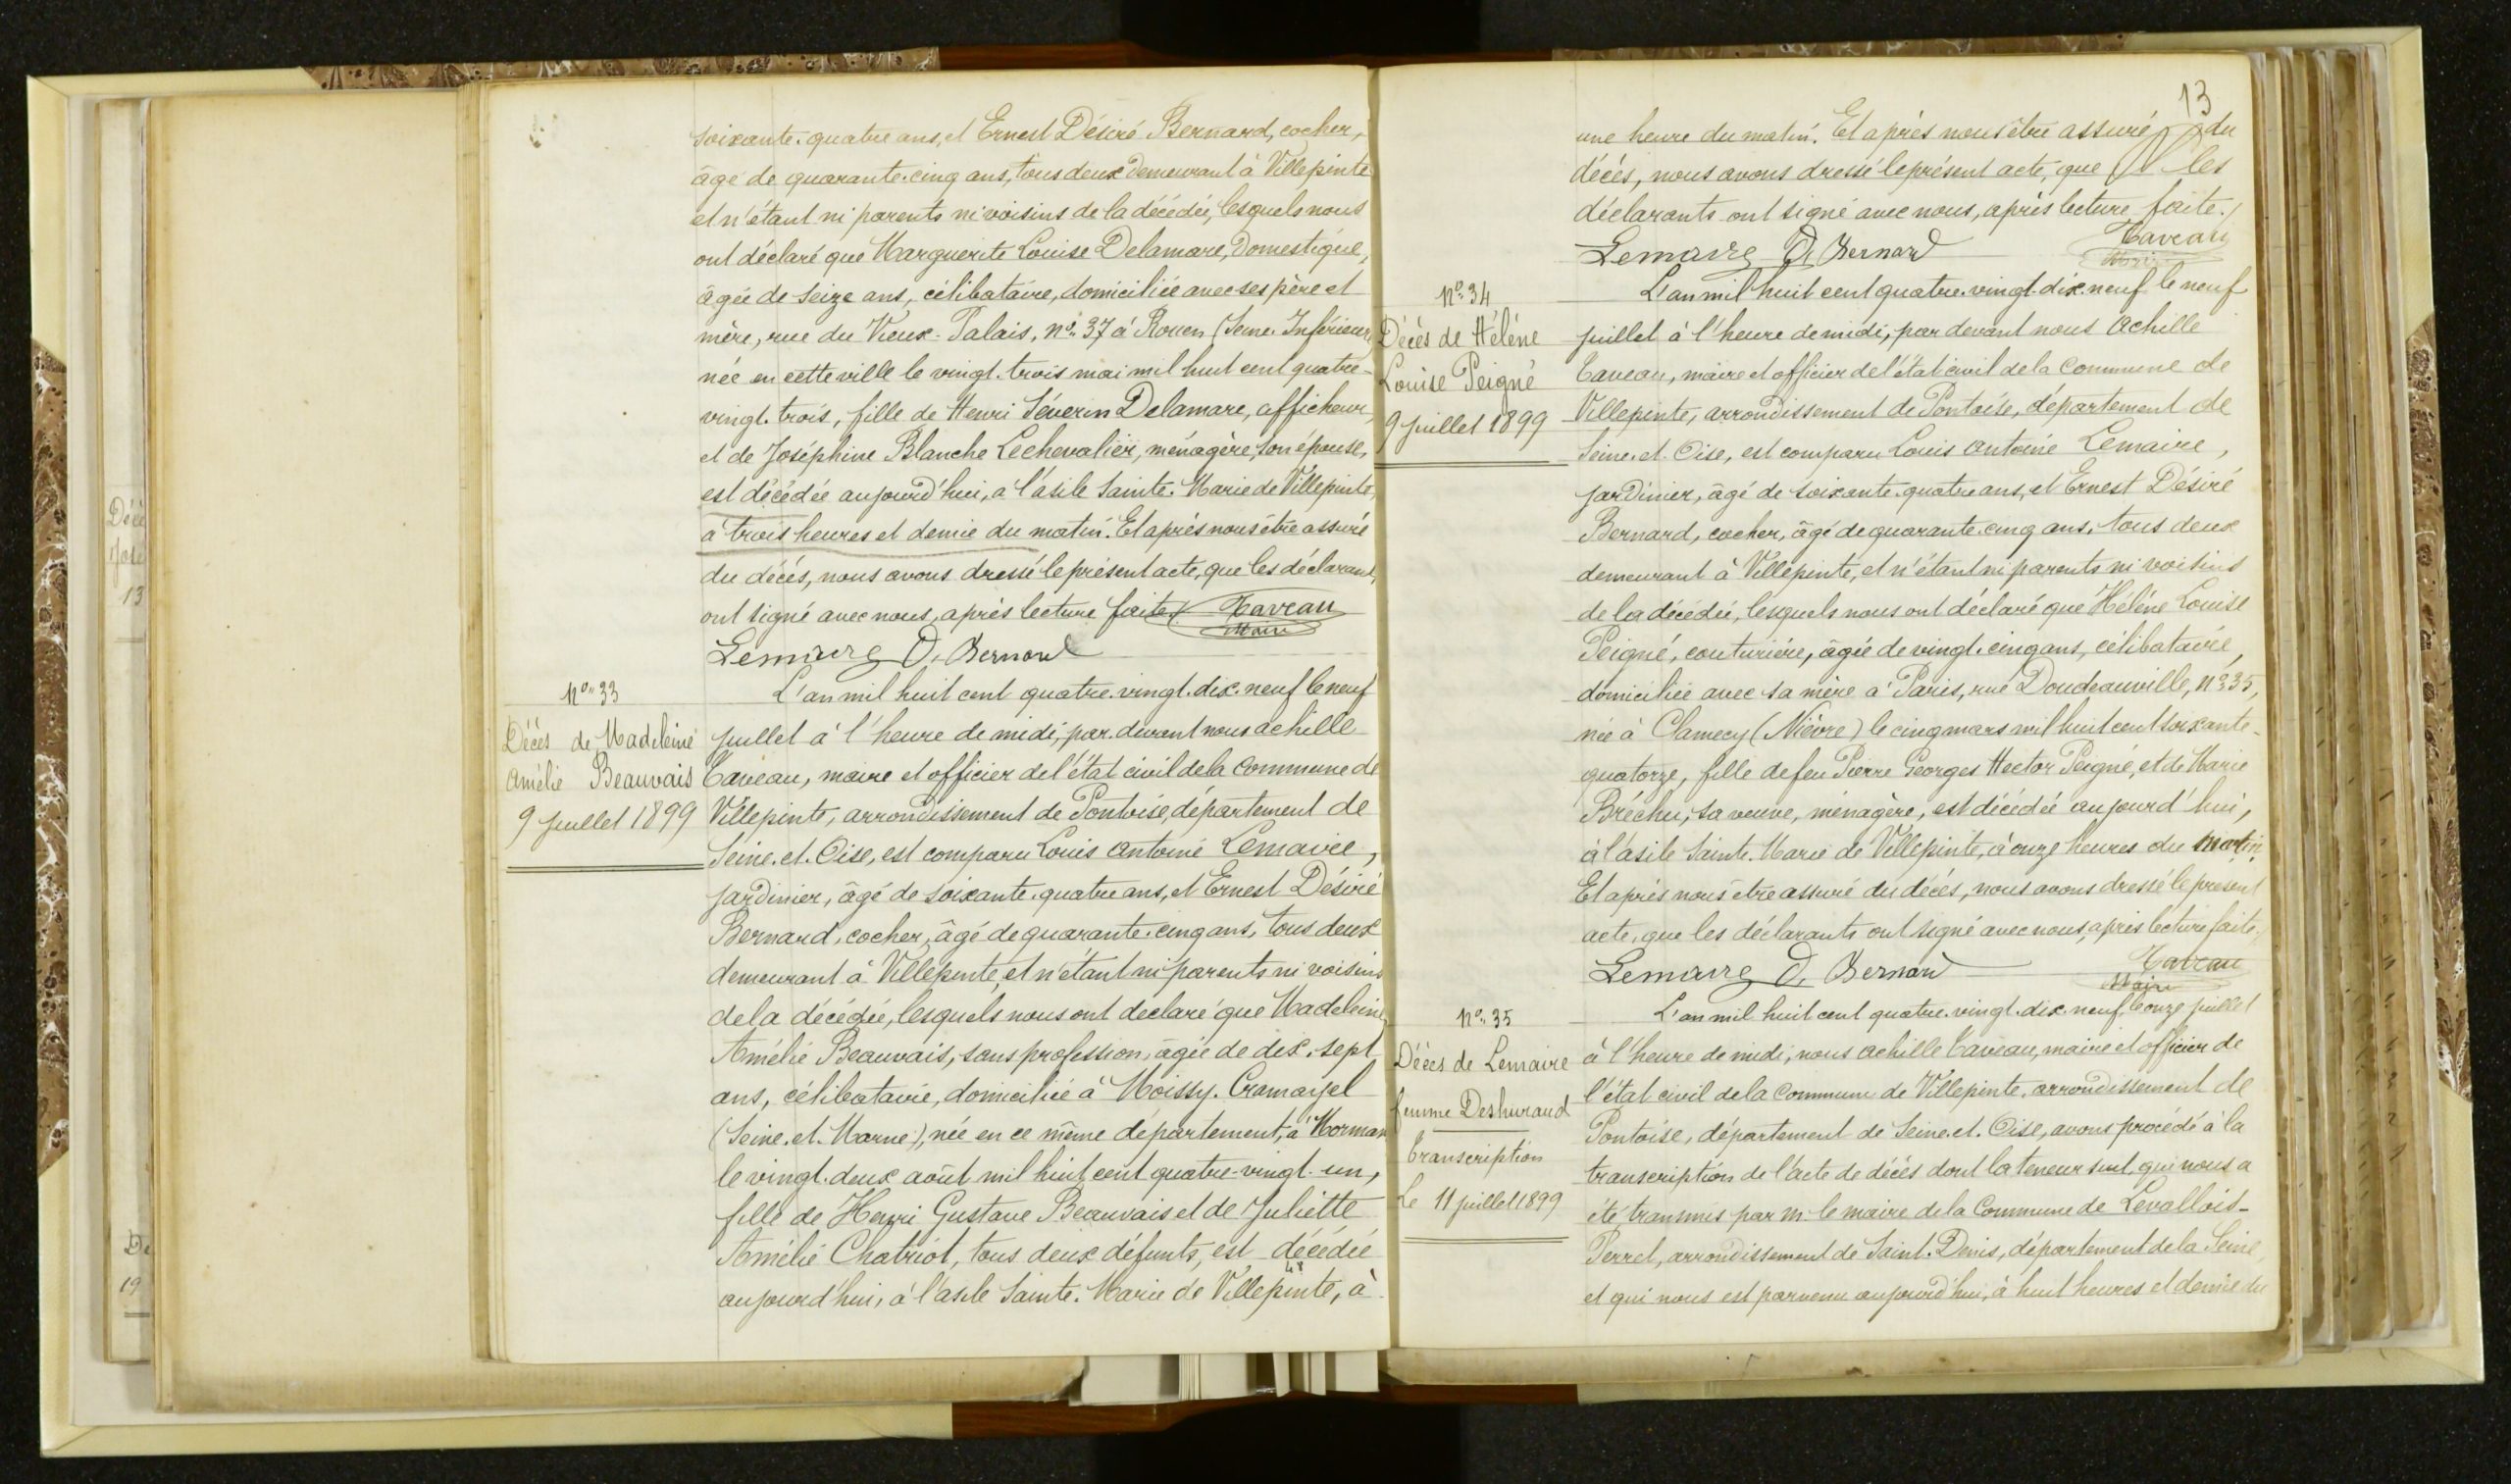 soixante-quatre ans, et Ernest Désiré Bernard, cocher,
âgé de quarante-cinq ans, tous deux demeurant à Villepinte
et n'étant ni parents ni voisins de la décédée, lesquels nous
ont déclaré que Marguerite Louise Delamare, domestique,
âgée de seize ans, célibataire, domiciliée avec ses père et
mère, rue du Vieux-Palais, n° 37 à Rouen (Seine-Inférieure
née en cette ville le vingt-trois mai mil huit cent quatre-
vingt-trois, fille de Henri Séverin Delamare, afficheur,
et de Joséphine Blanche Lechevalier, ménagère, son épouse,
est décédée aujourd'hui, à l'asile Sainte-Marie de Villepinte,
à trois heures et demie du matin. Et après nous être assuré
du décès, nous avons dressé le présent acte, que les déclarants
ont signé avec nous, après lecture faite. Taveau
Maire
Lemaire D. Bernard
N° 33
Décès de Madeleine
Amélie Beauvais
9 juillet 1899
L'an mil huit cent quatre-vingt-dix-neuf le neuf
juillet à l'heure de midi, par-devant nous Achille
Taveau, maire et officier de l'état civil de la commune de
Villepinte, arrondissement de Pontoise, département de
Seine-et-Oise, est comparu Louis Antoine Lemaire,
jardinier, âgé de soixante-quatre ans, et Ernest Désiré
Bernard, cocher, âgé de quarante-cinq ans, tous deux
demeurant à Villepinte, et n'étant ni parents ni voisins
de la décédée, lesquels nous ont déclaré que Madeleine
Amélie Beauvais, sans profession, âgée de dix-sept
ans, célibataire, domiciliée à Moissy-Cramayel
(Seine-et-Marne), née en ce même département, à Morman
le vingt-deux août mil huit cent quatre-vingt-un,
fille de Henri Gustave Beauvais et de Juliette
Amélie Chatriot, tous deux défunts, est décédée
aujourd'hui, à l'asile Sainte-Marie de Villepinte, à
13
une heure du matin. Et après nous être assuré du
décès, nous avons dressé le présent acte, que les
déclarants ont signé avec nous, après lecture faite.
Lemaire D. Bernard Taveau
Maire
N° 34
Décès de Hélène
Louise Peigné
9 juillet 1899
L'an mil huit cent quatre-vingt-dix-neuf le neuf
juillet à l'heure de midi, par devant nous Achille
Taveau, maire et officier de l'état civil de la commune de
Villepinte, arrondissement de Pontoise, département de
Seine-et-Oise, est comparu Louis Antoine Lemaire,
jardinier, âgé de soixante-quatre ans, et Ernest Désiré
Bernard, cocher, âgé de quarante-cinq ans, tous deux
demeurant à Villepinte, et n'étant ni parents ni voisins
de la décédée, lesquels nous ont déclaré que Hélène Louise
Peigné, couturière, âgée de vingt-cinq ans, célibataire,
domiciliée avec sa mère à Paris, rue Doudeauville, n° 35,
née à Clamecy (Nièvre) le cinq mars mil huit cent soixante-
quatorze, fille de feu Pierre Georges Hector Peigné, et de Marie
Bréchu, sa veuve, ménagère, est décédée aujourd'hui,
à l'asile Sainte-Marie de Villepinte, à onze heures du matin.
Et après nous être assuré du décès, nous avons dressé le présent
acte, que les déclarants ont signé avec nous, après lecture faite.
Lemaire D. Bernard Taveau
Maire
N° 35
Décès de Lemaire
femme Deshuraud
Transcription
Le 11 juillet 1899
L'an mil huit cent quatre-vingt-dix-neuf, le onze juillet
à l'heure de midi, nous Achille Taveau, maire et officier de
l'état civil de la commune de Villepinte, arrondissement de
Pontoise, département de Seine-et-Oise, avons procédé à la
transcription de l'acte de décès dont la teneur suit, qui nous a
été transmis par M. le maire de la Commune de Levallois-
Perret, arrondissement de Saint-Denis, département de la Seine,
et qui nous est parvenu aujourd'hui, à huit heures et demie du
Décè
José
13
De
19